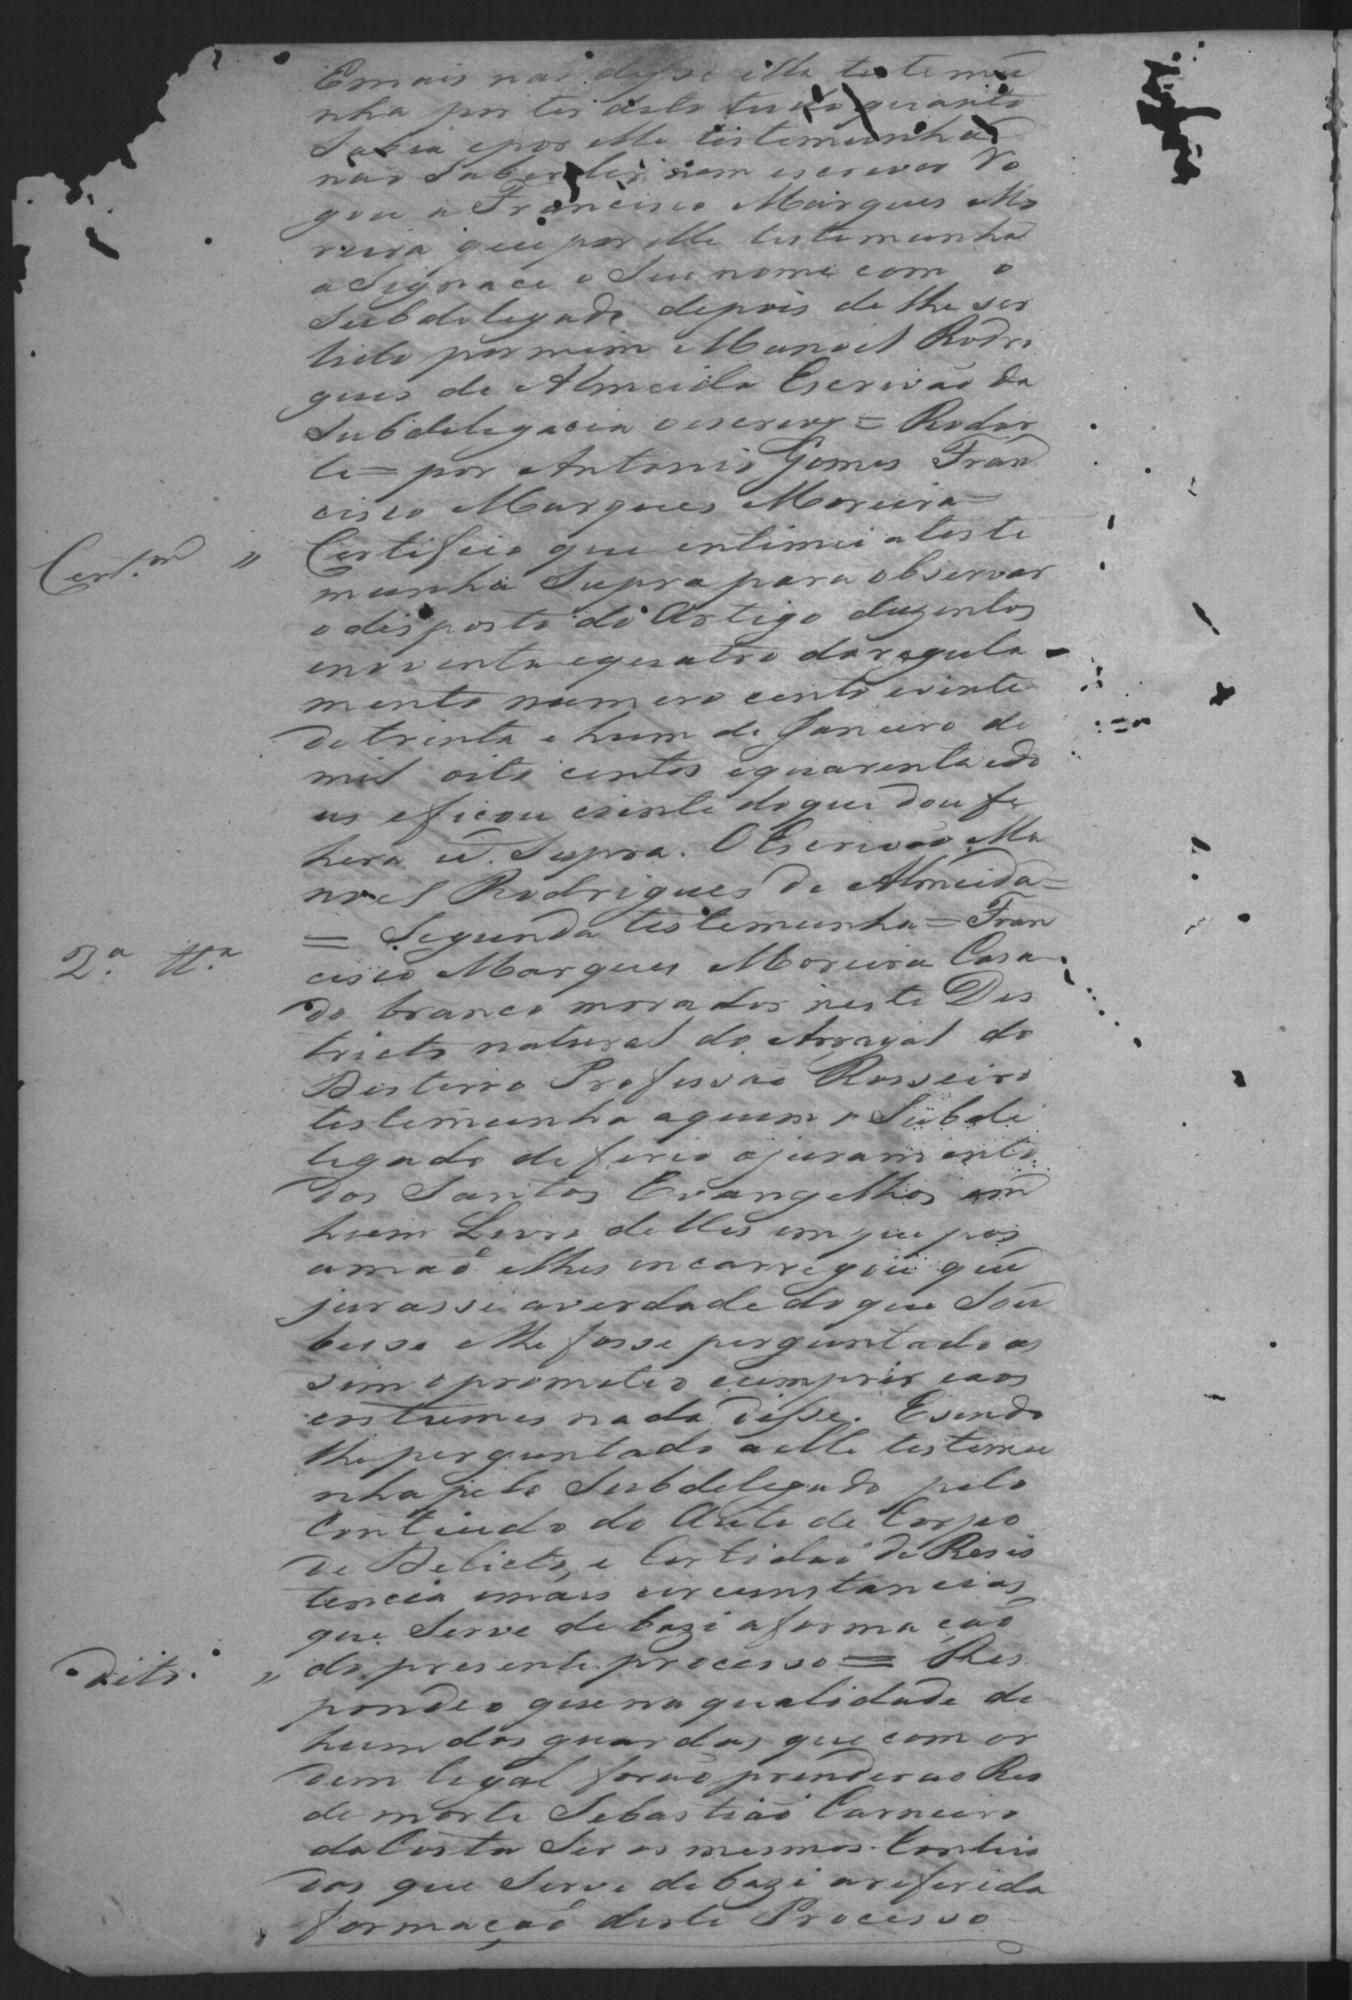 E mais não dysse ella testemũ
nha por ter dito tudo quanto
Sabia e por elle testemunha
não Saber ler nem escrever Ro
gou a Francisco Marques Mo
reira que por elle testemunha
aSignace o Seu nome com o
Subdelegado depois de lhe ser
lido por mim Manoel Rodri
gues de Almeida Escrivão da
Subdelegacia o escrevy = Rodar
te = por Antonio Gomes Fran
cisco Marques Moreira =
Cert.m " Certifico que intimei a teste
munha Supra para observar
o disposto do Artigo duzentos
e noventa e quatro do regula
mento numero cento e vinte
de trinta e hum de Janeiro de
mil oito centos e quarenta e do
us e ficou ciente do que dou fe
hera ut Supra. O Escrivão Ma
noel Rodrigues de Almeida =
2.a tt.a = Segunda testemunha = Fran
cisco Marques Moreira Casa
do branco morador neste Des
tricto natural do Arrayal do
Desterro Profissão Rosseiro
testemunha a quem o Subde
legado deferio o juramento
dos Santos Evangelhos em
hum Livro delles em que pos
a mão e lhes incarregou que
jurasse a verdade do que Sou
besse e lhe fosse perguntado as
sim o prometeo cumprir e aos
costumes nada disse. E sendo
lhe perguntado a elle testemu
nha pelo Subdelegado pelo
Contiudo do Auto de Corpo
de Delicto, e Certidão de Resis
tencia e mais circunstancias
que Serve de bazi a formação
Dito. " do presente processo = Res
pondeo que na qualidade de
hum dos guardas que com or
dem legal forão prender ao Reo
de morte Sebastião Carneiro
da Costa Ser os mesmos Contiu
dos que Serve de bazi a referida
formação deste Processo